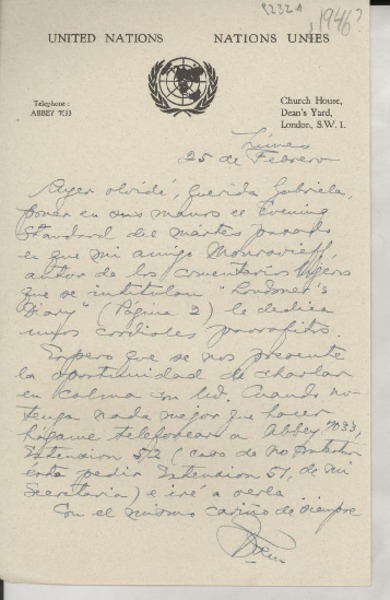 1946?
UNITED NATIONS NATIONS UNIES
Telephone :
ABBEY 7033
Church House,
Dean's Yard,
London, S.W. 1.
Lunes
25 de Febrero
Ayer olvidé, querida Gabriela,
poner en sus manos el Evening
Standard del martes pasado
en que mi amigo
autor de los comentarios ligeros
que se intitulan "Londoner's
Diary" (Página 2) le dedica
unos cordiales parrafitos.
Espero que se nos presente
la oportunidad de charlar
en calma con Ud. Cuando no
tenga nada mejor que hacer
hágame telefonear a Abbey 7033,
Extension 572 (caso de no
ésta pedir Extension 51, de mi
Secretaria) e iré a verla
Con el mismo cariño de siempre